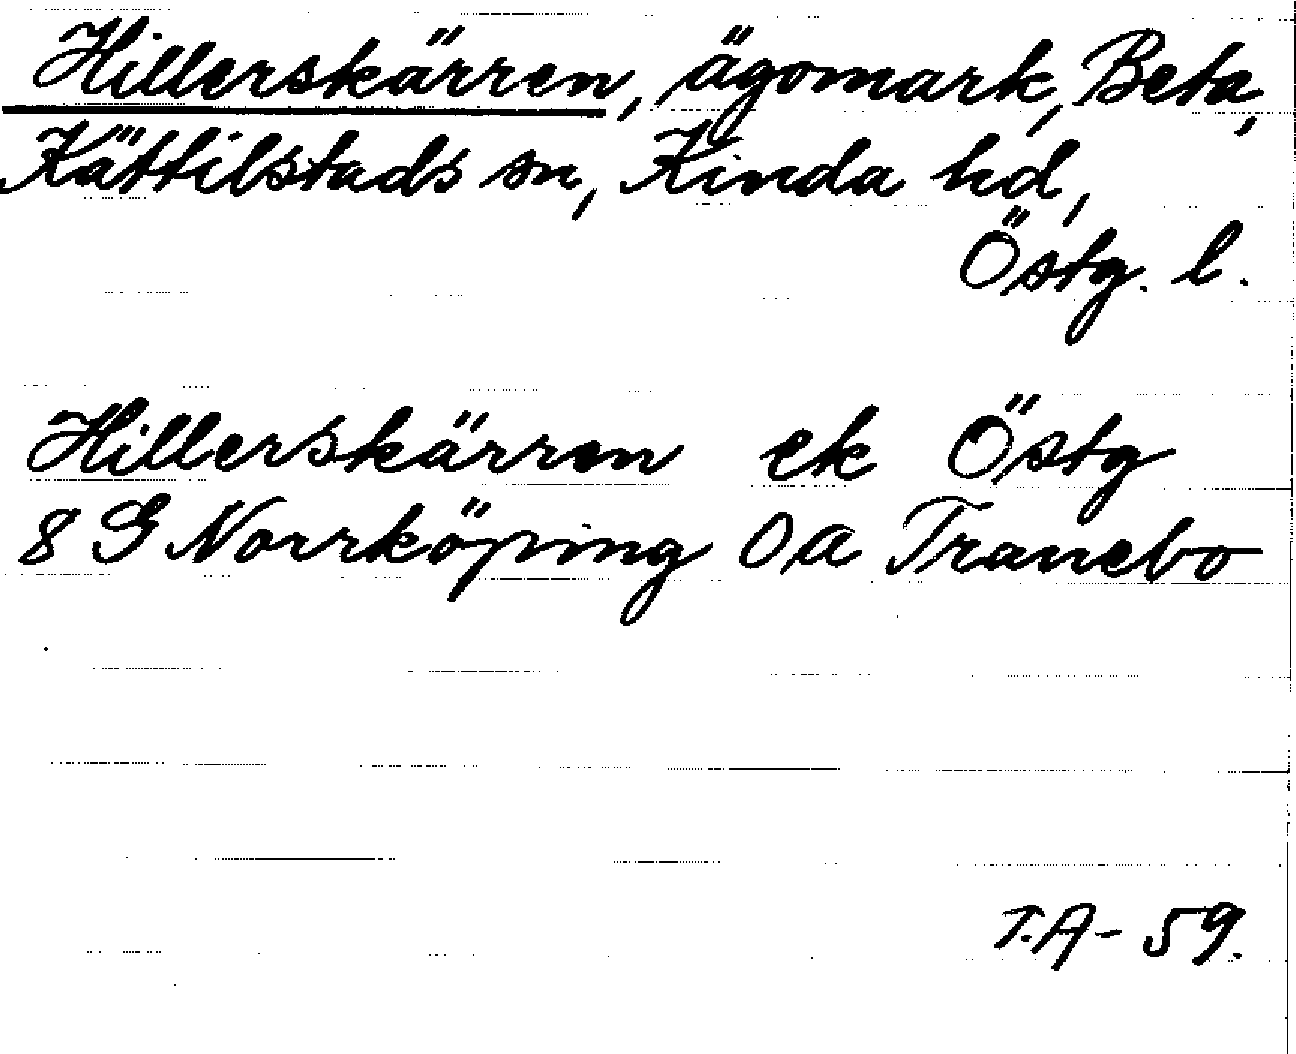 Hillerskärren, ägomark, Beta,
Kättilstads sn, Kinda hd,
Östg. l.
Hillerskärren ek Östg
8 G Norrköping 0a Tranebo
T.A-59.